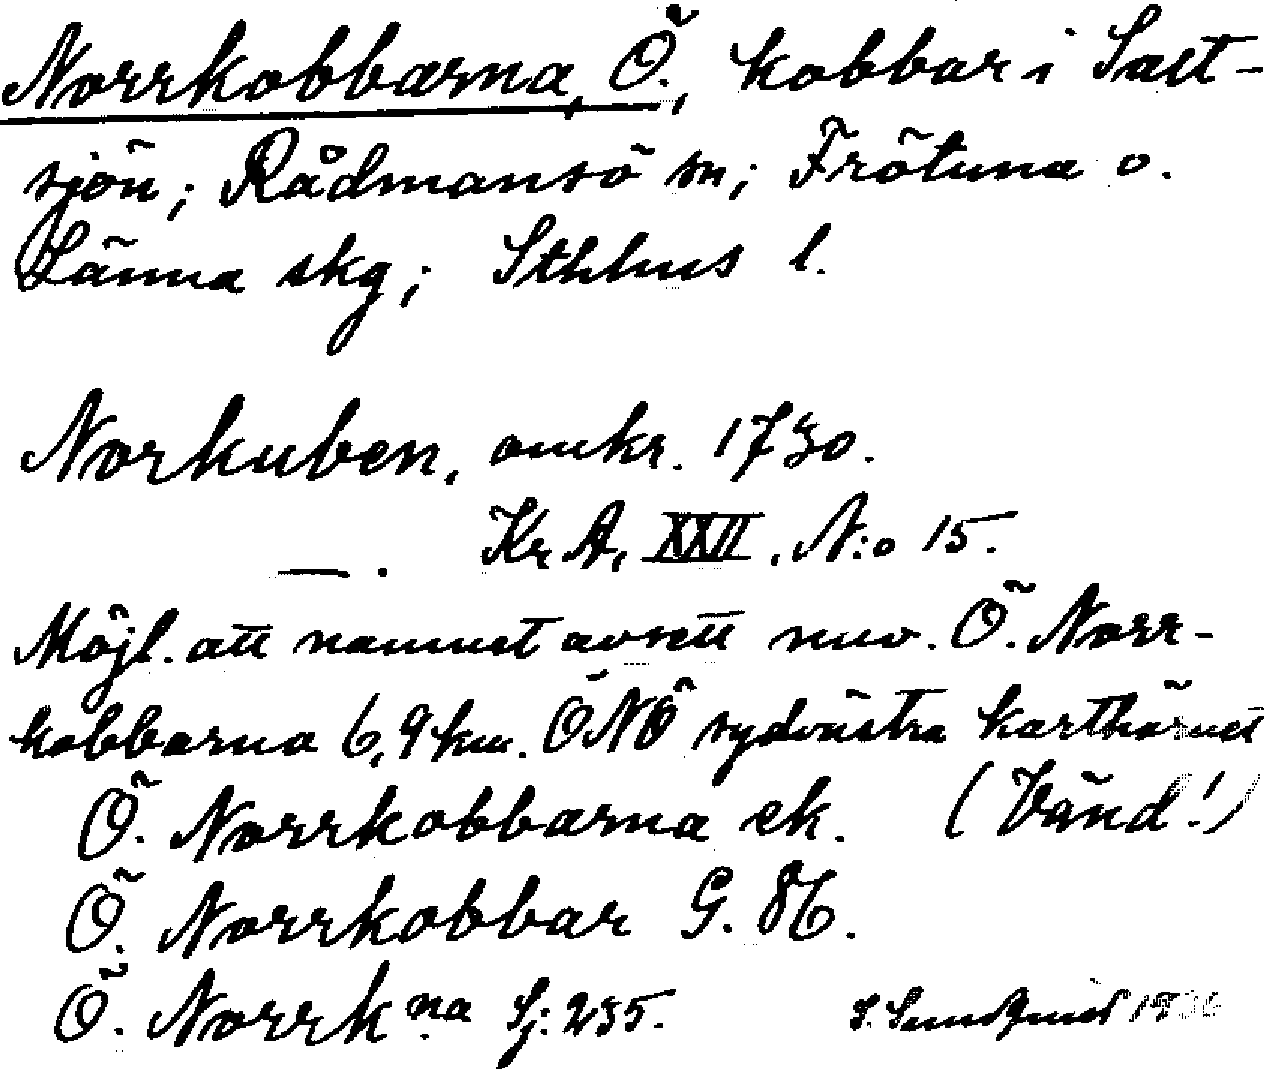 Norrkobbarna, Ö., kobbar i Salt-
sjön; Rådmansö sn; Frötuna o.
Länna skg; Sthlms l.
Norkuben, omkr. 1730.
—. Kr A, XXII, N:o 15.
Möjl. att namnet avsett nuv. Ö. Norr-
kobbarna 6,9 km. ÖNÖ sydvästra karthörnet
Ö. Norrkobbarna ek. (Vänd!)
Ö. Norrkobbar G. 86.
Ö. Norrk:na Sj: 235. S. Sundquist 1936